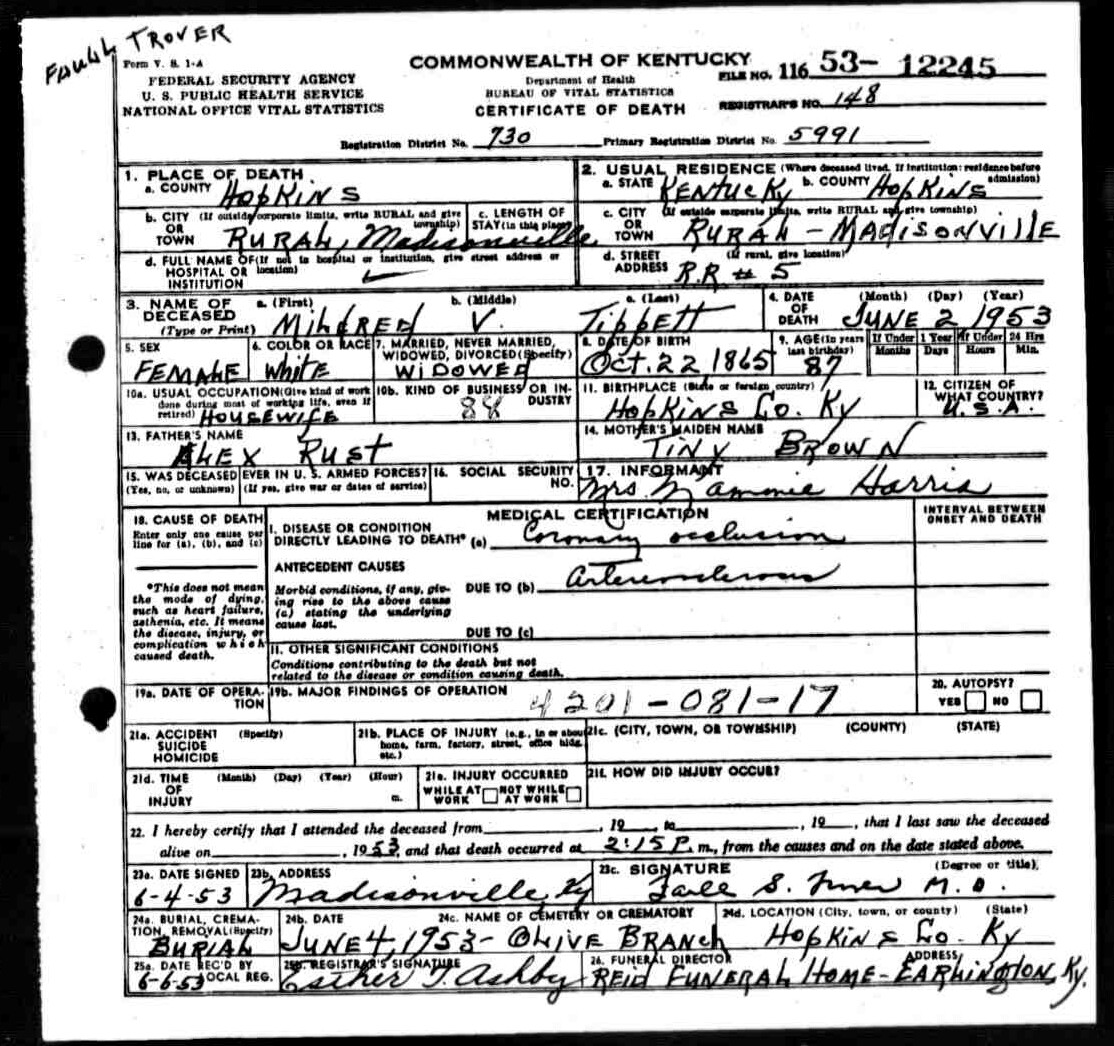 TROVER
Form V. S. 1-A
FEDERAL SECURITY AGENCY
U. S. PUBLIC HEALTH SERVICE
NATIONAL OFFICE VITAL STATISTICS
COMMONWEALTH OF KENTUCKY
Department of Health
BUREAU OF VITAL STATISTICS
CERTIFICATE OF DEATH
FILE NO. 116 53- 12245
REGISTRAR'S NO. 148
Registration District No. 730 Primary Registration District No. 5991
1. PLACE OF DEATH
a. COUNTY HOPKINS
b. CITY (If outside corporate limits, write RURAL and give township)
OR
TOWN RURAL, Madisonville
c. LENGTH OF
STAY (in this place)
d. FULL NAME OF (If not in hospital or institution, give street address or location)
HOSPITAL OR
INSTITUTION
2. USUAL RESIDENCE (Where deceased lived. If institution: residence before admission)
a. STATE KENTUCKY b. COUNTY HOPKINS
c. CITY (If outside corporate limits, write RURAL and give township)
OR
TOWN RURAL - MADISONVILLE
d. STREET (If rural, give location)
ADDRESS R.R # 5
3. NAME OF
DECEASED
(Type or Print)
a. (First) b. (Middle) c. (Last)
MILDRED V. TIPPETT
4. DATE
OF
DEATH
(Month) (Day) (Year)
JUNE 2 1953
5. SEX
FEMALE
6. COLOR OR RACE
White
7. MARRIED, NEVER MARRIED,
WIDOWED, DIVORCED (Specify)
WIDOWED
8. DATE OF BIRTH
Oct. 22 1865
9. AGE (In years
last birthday)
87
If Under 1 Year If Under 24 Hrs
Months Days Hours Min.
10a. USUAL OCCUPATION (Give kind of work
done during most of working life, even if
retired) HOUSEWIFE
10b. KIND OF BUSINESS OR INDUSTRY
88
11. BIRTHPLACE (State or foreign country)
HOPKINS Co. Ky
12. CITIZEN OF
WHAT COUNTRY?
U.S.A.
13. FATHER'S NAME
ALEX RUST
14. MOTHER'S MAIDEN NAME
TINY BROWN
15. WAS DECEASED EVER IN U. S. ARMED FORCES?
(Yes, no, or unknown) (If yes, give war or dates of service)
16. SOCIAL SECURITY
NO.
17. INFORMANT
Mrs. Mammie Harris
18. CAUSE OF DEATH
Enter only one cause per
line for (a), (b), and (c)
*This does not mean
the mode of dying,
such as heart failure,
asthenia, etc. It means
the disease, injury, or
complication which
caused death.
MEDICAL CERTIFICATION
INTERVAL BETWEEN
ONSET AND DEATH
I. DISEASE OR CONDITION
DIRECTLY LEADING TO DEATH* (a) Coronary occlusion
ANTECEDENT CAUSES
Morbid conditions, if any, giv-
ing rise to the above cause
(a) stating the underlying
cause last.
DUE TO (b) Arteriosclerosis
DUE TO (c)
II. OTHER SIGNIFICANT CONDITIONS
Conditions contributing to the death but not
related to the disease or condition causing death.
19a. DATE OF OPERA-
TION
19b. MAJOR FINDINGS OF OPERATION
4201-081-17
20. AUTOPSY?
YES NO
21a. ACCIDENT (Specify)
SUICIDE
HOMICIDE
21b. PLACE OF INJURY (e.g., in or about
home, farm, factory, street, office bldg.
etc.)
21c. (CITY, TOWN, OR TOWNSHIP) (COUNTY) (STATE)
21d. TIME (Month) (Day) (Year) (Hour)
OF
INJURY m.
21e. INJURY OCCURRED
WHILE AT NOT WHILE
WORK AT WORK
21f. HOW DID INJURY OCCUR?
22. I hereby certify that I attended the deceased from , 19 to , 19 , that I last saw the deceased
alive on , 1953, and that death occurred at 2:15 P. m., from the causes and on the date stated above.
23a. DATE SIGNED
6-4-53
23b. ADDRESS
Madisonville, Ky
23c. SIGNATURE (Degree or title)
S. M.D.
24a. BURIAL, CREMA-
TION, REMOVAL (Specify)
BURIAL
24b. DATE
JUNE 4, 1953-
24c. NAME OF CEMETERY OR CREMATORY
OLIVE BRANCH
24d. LOCATION (City, town, or county) (State)
HOPKINS Co. Ky
25a. DATE REC'D BY
LOCAL REG.
6-6-53
25b. REGISTRAR'S SIGNATURE
Esther T. Ashby
26. FUNERAL DIRECTOR ADDRESS
REID FUNERAL HOME - EARLINGTON, Ky.